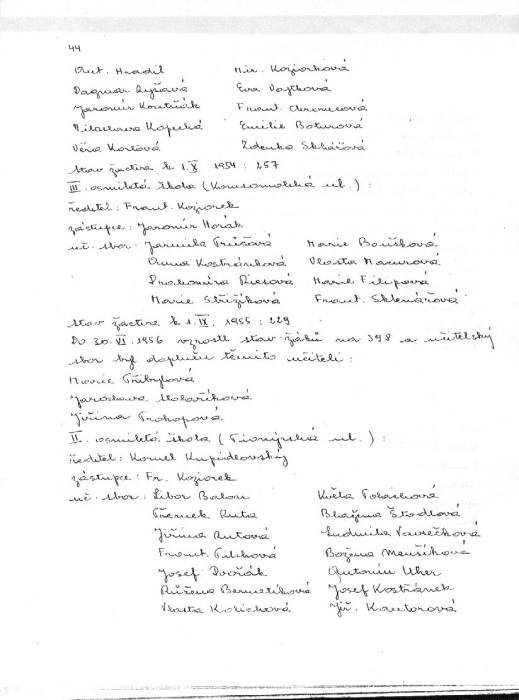 44
Ant. Hradil Mir. Koziorková
Dagmar Ryšavá Eva Vojtková
Jaromír Koutňák Frant.
Miloslava Kopecká Emilie Boturová
Věra Kortová Zdenka Sklářová
stav žactva k 1. X. 1954 : 257
III. osmiletá škola (Komsomolská ul.) :
ředitel : Frant. Koziorek
zástupce : Jaromír Horák
uč. sbor : Jarmila Marie
Anna Kostránková Vlasta Mazurová
Drahomíra Riesová Marie Filipová
Marie Střižíková Frant. Sklenářová
stav žactva k 1. IX. 1955 : 229
Do 30. VI. 1956 vzrostl stav žáků na 398 a učitelský
sbor byl doplněn těmito učiteli :
Marie Přibylová
Jaroslava Stolaříková
Jiřina Prokopová
II. osmiletá škola (Pionýrská ul.) :
ředitel : Kornel Kupidlovský
zástupce : Fr. Koziorek
uč. sbor : Libor Balon Květa
Ruta Blažena Štodlová
Jiřina Rutová Ludmila Vavrečková
Frant. Božena Menšíková
Josef Dvořák Antonín Uher
Růžena Bernatíková Josef Kostřánek
Vlasta Kolichová Jiř. Kantorová